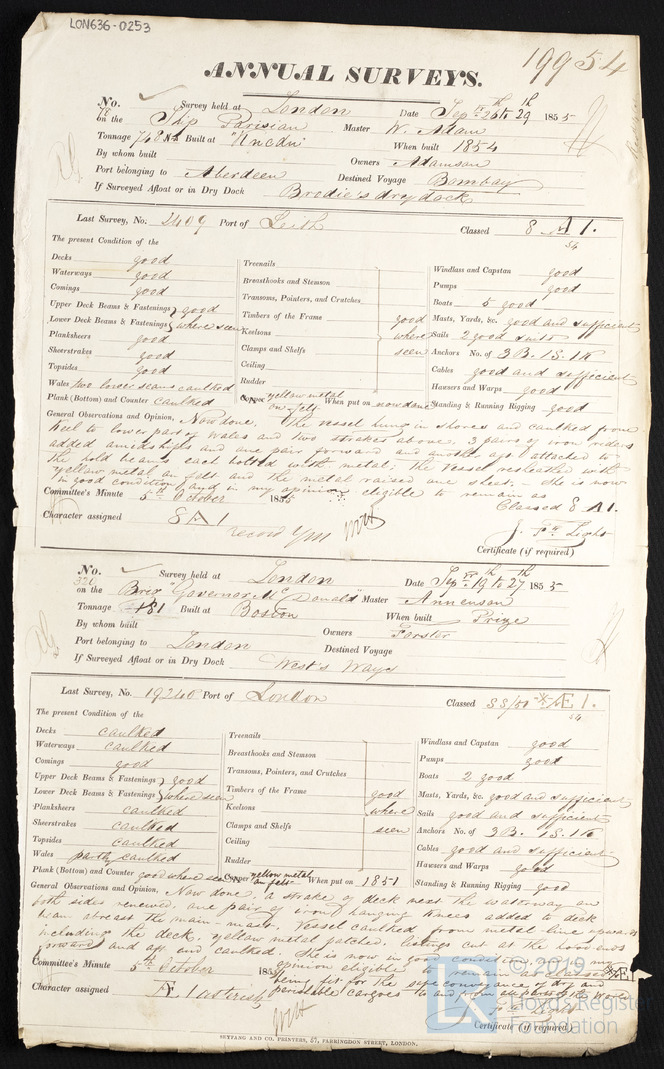 LON636-0253
19954
ANNUAL SURVEYS.
No. 78 Survey held at London Date Sepr 26th to 29th 1855
on the Ship Parisian Master W. Adam
Tonnage 748 Built at "Uncdn" When built 1854
By whom built Owners Adamson
Port belonging to Aberdeen Destined Voyage Bombay
If Surveyed Afloat or in Dry Dock Brodie's dry dock
Last Survey, No. 2409 Port of Leith Classed 8 A 1.
54
The present Condition of the
Decks good
Waterways good
Comings good
Upper Deck Beams & Fastenings good
Lower Deck Beams & Fastenings where seen
Planksheers good
Sheerstrakes good
Topsides good
Wales two lower seams caulked
Plank (Bottom) and Counter caulked
Treenails
Breasthooks and Stemson
Transoms, Pointers, and Crutches
Timbers of the Frame good
Keelsons where
Clamps and Shelfs seen
Ceiling
Rudder
Copper yellow metal on felt When put on now done
Windlass and Capstan good
Pumps good
Boats 5 good
Masts, Yards, &c. good and sufficient
Sails 2 good suits
Anchors No. of 3 B. 1 S. 1 K
Cables good and sufficient
Hawsers and Warps good
Standing & Running Rigging good
General Observations and Opinion, Now done. The vessel hung in shores and caulked from
keel to lower part of Wales and two strakes above, 3 pairs of iron riders
added amidships and one pair forward and another aft attached to
the hold beams each bolted with metal; the vessel resheathed with
yellow metal on felt and the metal raised one sheet. - She is now
in good condition and in my opinion eligible to remain as
Classed 8 A 1.
Committee's Minute 5th October 1855
Character assigned 8 A 1
record YM
Certificate (if required)
No. 320 Survey held at London Date Sepr 19th to 27th 1855
on the Brig "Governor McDonald" Master Annenson
Tonnage 181 Built at Boston When built Prize
By whom built Owners Forster
Port belonging to London Destined Voyage
If Surveyed Afloat or in Dry Dock West's Ways
Last Survey, No. 19240 Port of London Classed SS/50 Æ 1.
54
The present Condition of the
Decks caulked
Waterways caulked
Comings good
Upper Deck Beams & Fastenings good
Lower Deck Beams & Fastenings where seen
Planksheers caulked
Sheerstrakes caulked
Topsides caulked
Wales partly caulked
Plank (Bottom) and Counter good where seen
Treenails
Breasthooks and Stemson
Transoms, Pointers, and Crutches
Timbers of the Frame good
Keelsons where
Clamps and Shelfs seen
Ceiling
Rudder
Copper yellow metal on felt When put on 1851
Windlass and Capstan good
Pumps good
Boats 2 good
Masts, Yards, &c. good and sufficient
Sails good and sufficient
Anchors No. of 3 B. 1 S. 1 K
Cables good and sufficient
Hawsers and Warps good
Standing & Running Rigging good
General Observations and Opinion, Now done, a strake of deck next the waterway on
both sides renewed, one pair of iron hanging knees added to deck
beam abreast the main-mast. Vessel caulked from metal-line upwards
including the deck, yellow metal patched, listings cut at the hood ends
forward and aft and caulked. She is now in good condition and in my
opinion eligible to remain as classed Æ
being fit for the safe conveyance of dry and
perishable cargoes to and from all parts of the World
Committee's Minute 5th October 1855
Character assigned Æ 1 asterisk
Certificate (if required)
SKYFANG AND CO. PRINTERS, 57, FARRINGDON STREET, LONDON.
LR
© 2019
Lloyd's Register
Foundation